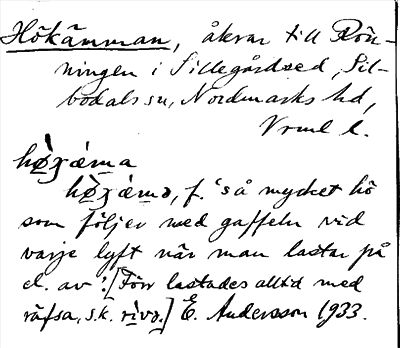 Hökämman, åkrar till Rön-
ningen i Sillegårdsed, Sil-
bodals sn, Nordmarks hd,
Vrml l.
hø̀ʒǽma
hø̀ʒǽmə, f. 'så mycket hö
som följer med gaffeln vid
varje lyft när man lastar på
el. av'. [Förr lastades alltid med
räfsa, s.k. rìvə.] E. Andersson 1933.